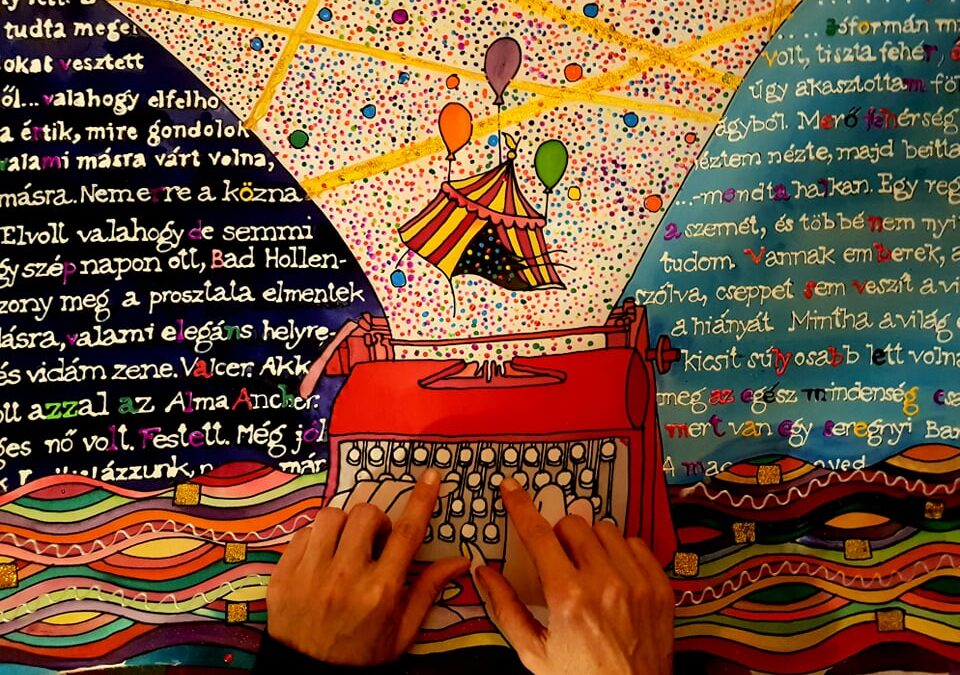 tudta megе
okat vesztett
ől... valahogy elfelho
a értik, mire gondolok
valami másra várt volna,
másra. Nem erre a közna
Elvolt valahogy de semmi
gy szép napon ott, Bad Hollen-
zony meg a prosztata elmentek
lásra, valami elegáns helyre-
és vidám zene. Valcer. Akk
ott azzal az Alma Ancher.
ges nő volt. Festett. Még jól
már
... Jóformán mi
volt, tiszta fehér,
úgy akasztottam föl
ágyból. Merő fehérség
néztem nézte, majd beitta
...-mondta halkan. Egy reg
a szemét, és többé nem nyi
tudom. Vannak emberek, a
szólva, cseppet sem veszít a vi
a hiányát. Mintha a világ
kicsit súlyosabb lett volna
meg az egész mindenség
mert van egy seregnyi Bar
A